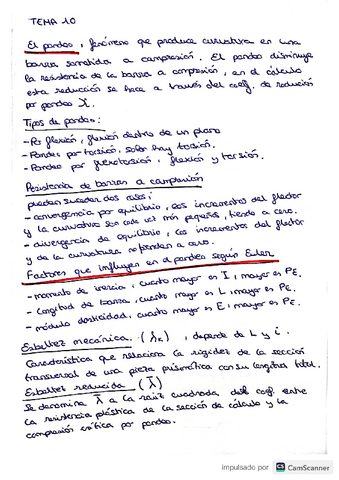 TEMA 10
El pandeo, fenómeno que produce curvatura en una
barra sometida a compresión. El pandeo disminuye
la resistencia de la barra a compresión, en el cálculo
esta reducción se hace a través del coef. de reducción
por pandeo X.
Tipos de pandeo:
- Por flexión, flexión dentro de un plano
- Pandeo por torsión, solo hay torsión.
- Pandeo por flexotorsión, flexión y torsión.
Resistencia de barras a compresión
pueden suceder dos casos:
- convergencia por equilibrio, los incrementos del flector
y la curvatura son cada vez más pequeños, tiende a cero.
- divergencia de equilibrio, los incrementos del flector
y de la curvatura no tienden a cero.
Factores que influyen en el pandeo según Euler
- momento de inercia, cuanto mayor es I, mayor es PE.
- Longitud de barra, cuanto mayor es L, mayor es PE.
- módulo elasticidad, cuanto mayor es E, mayor es PE.
Esbeltez mecánica. (λk), depende de L y i.
Característica que relaciona la rigidez de la sección
transversal de una pieza prismática con su longitud total.
Esbeltez reducida (λ̄)
Se denomina λ̄ a la raíz cuadrada del coef. entre
la resistencia plástica de la sección de cálculo y la
compresión crítica por pandeo.
impulsado por CS CamScanner